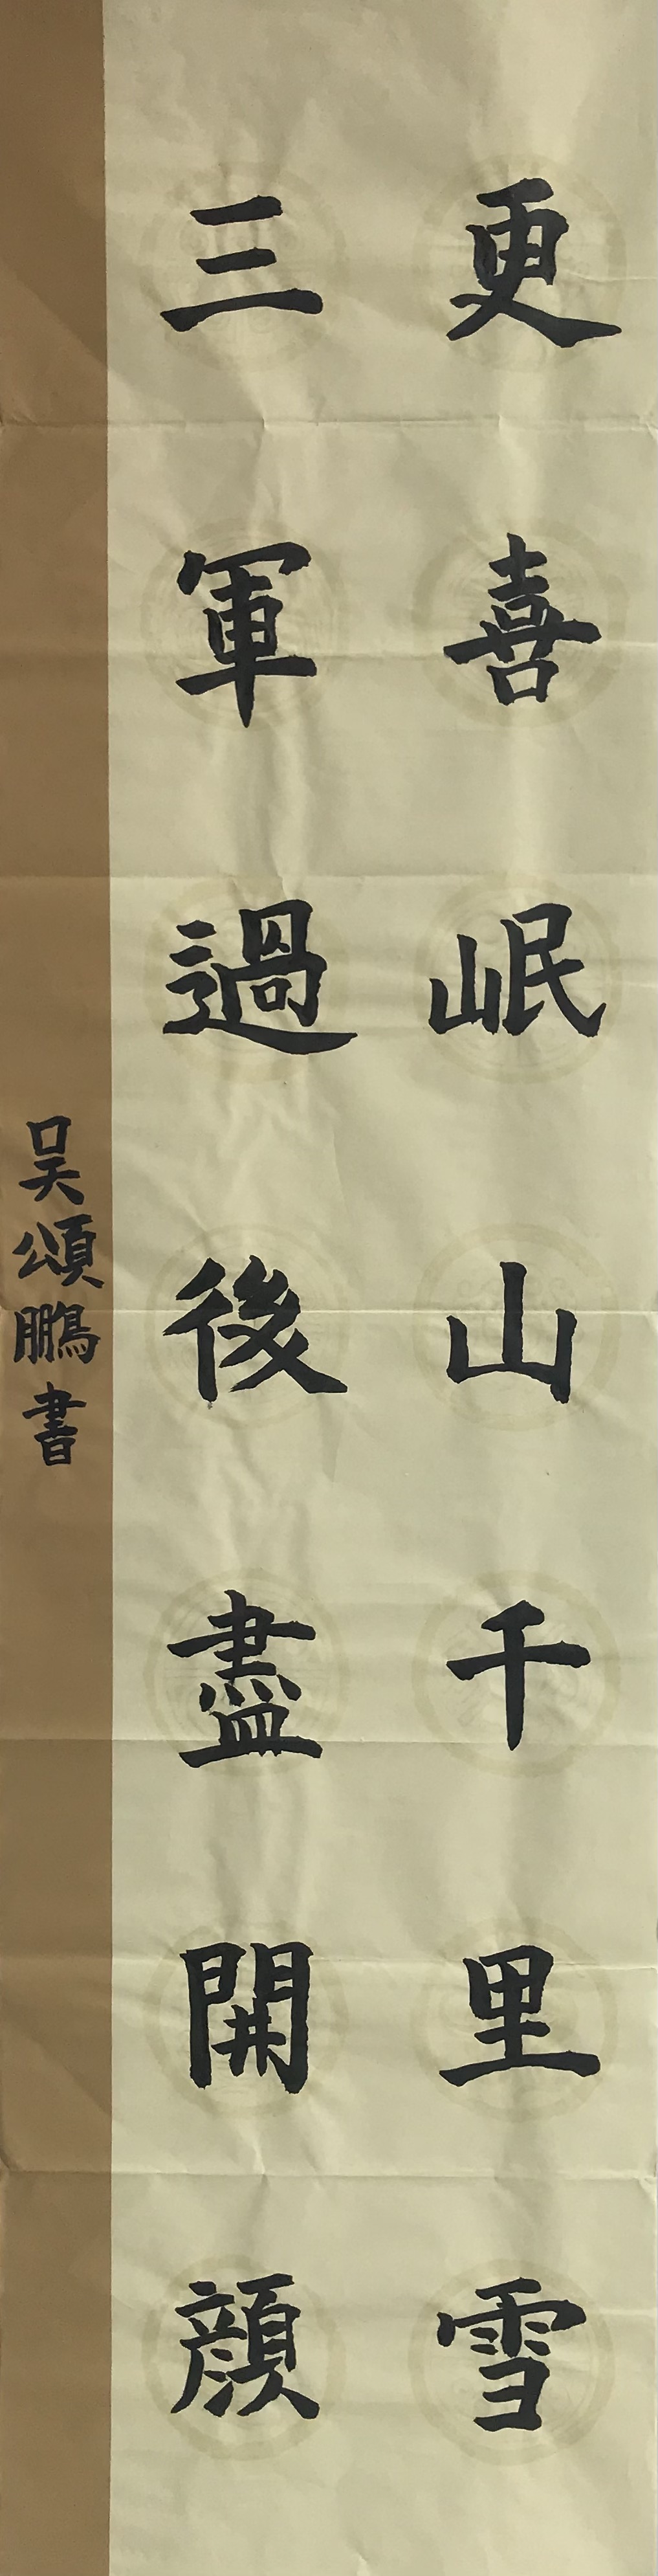 更喜岷山千里雪
三軍過後盡開顔
吴頌鵬書